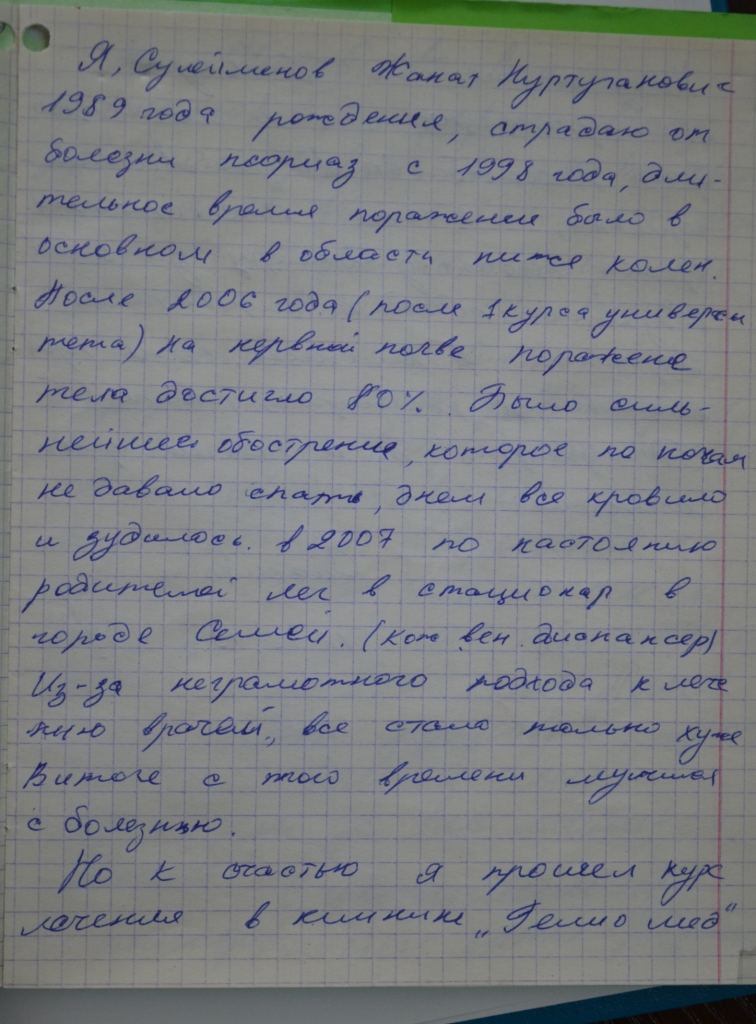 Я, Сулейменов Жанат Нуртуганович
1989 года рождения, страдаю от
болезни псориаз с 1998 года, дли-
тельное время поражение было в
основном в области ниже колен.
После 2006 года (после 1 курса универси
тета) на нервной почве поражение
тела достигло 80%. Было силь-
нейшее обострение, которое по ночам
не давало спать, днем все кровило
и зудилось. в 2007 по настоянию
родителей лег в стационар в
городе Семей. (кож вен. диспансер)
Из-за неграмотного подхода к лече
нию врачей, все стало только хуже
В итоге с того времени мучился
с болезнью.
Но к счастью я прошел курс
лечения в клинике „Гелио мед"